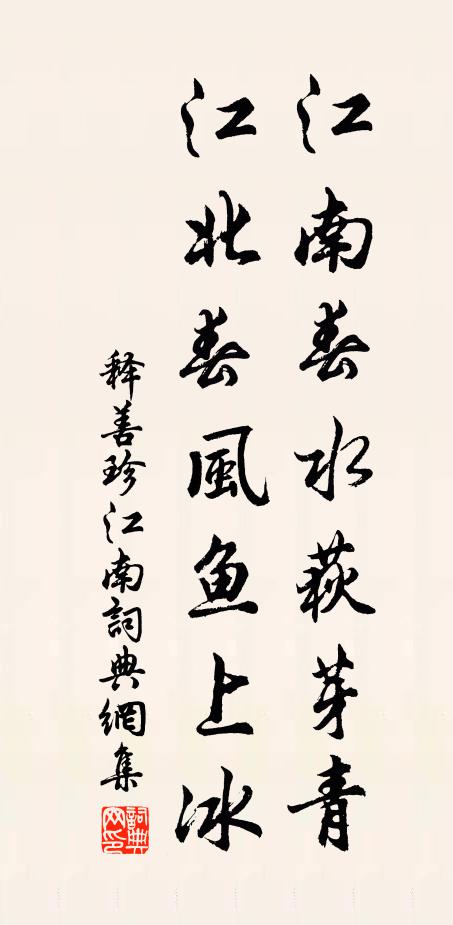 江南春水荻芽青
江北春風魚上冰
釋善珍江南詞典網集
詞典網印